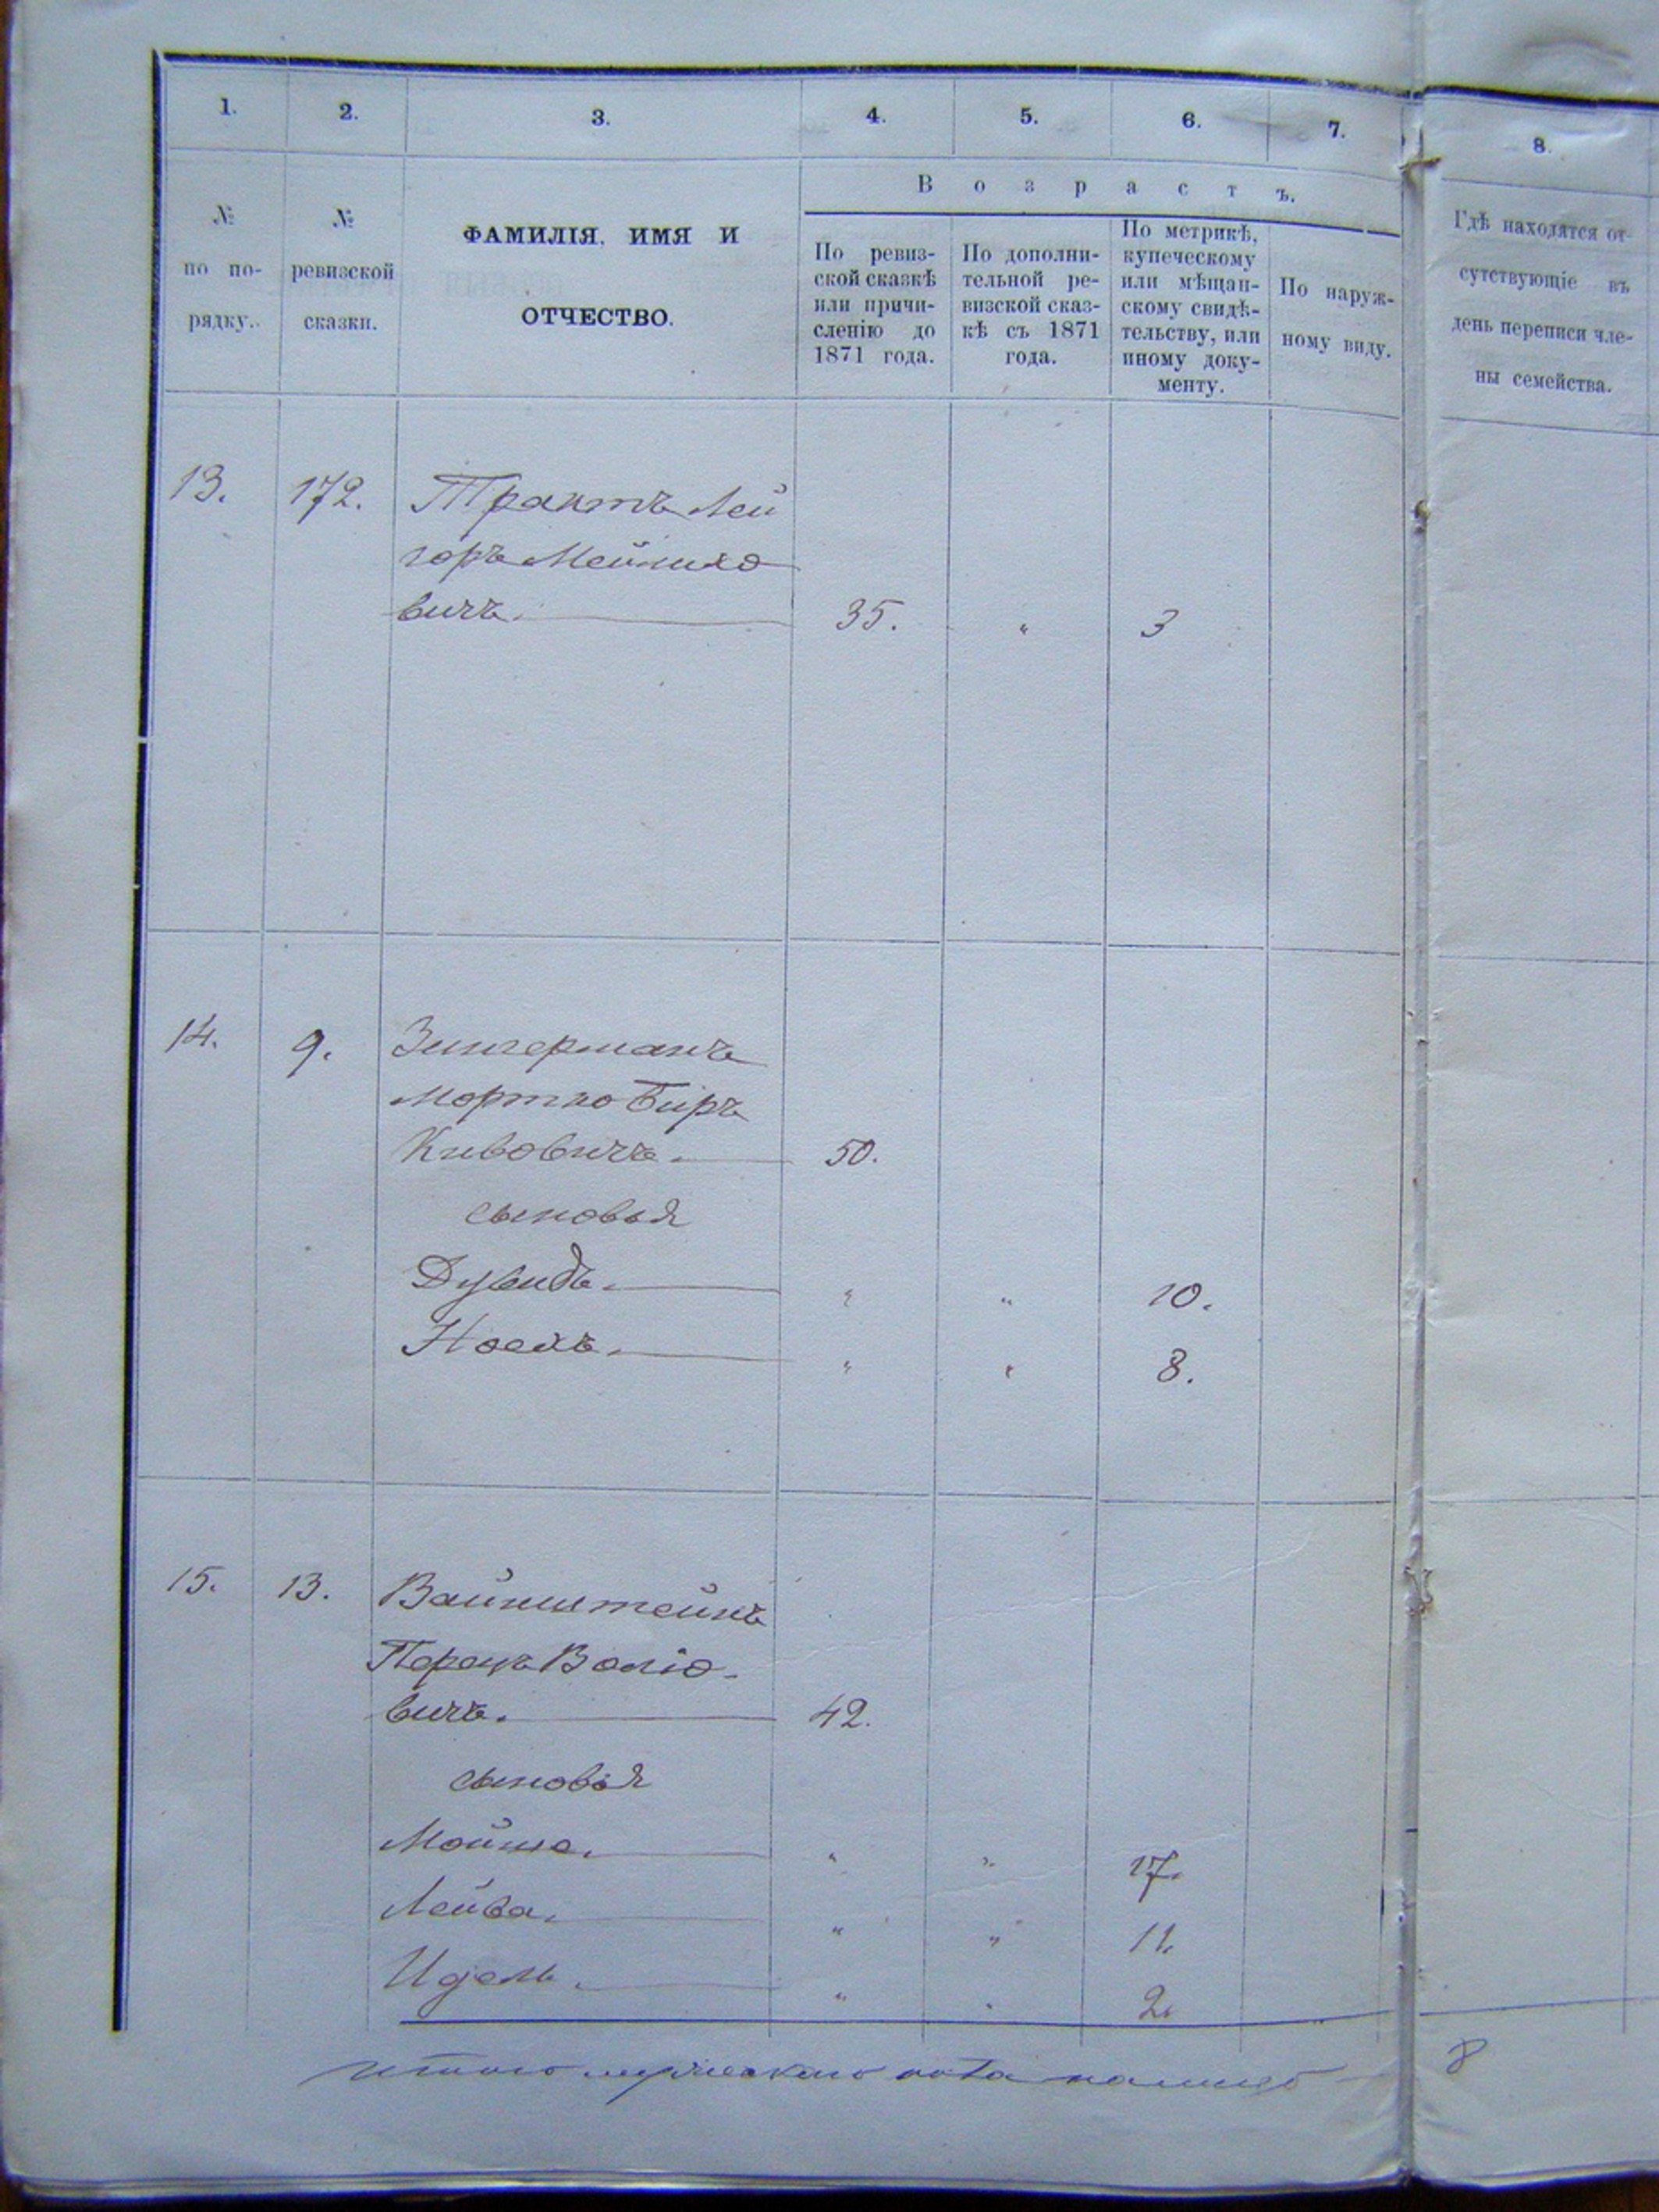 1. 2. 3. 4. 5. 6. 7. 8.
В о з р а с т ъ.
№ по по-рядку.
№ ревизской сказки.
ФАМИЛІЯ, ИМЯ И
ОТЧЕСТВО.
По ревиз-
ской сказкѣ
или причи-
сленію до
1871 года.
По дополни-
тельной ре-
визской сказ-
кѣ съ 1871
года.
По метрикѣ,
купеческому
или мѣщан-
скому свидѣ-
тельству, или
иному доку-
менту.
По наруж-
ному виду.
Гдѣ находятся от-
сутствующіе въ
день переписи чле-
ны семейства.
13. 172. Трактъ Лей
зоръ Мейлихо
вичъ. 35. " 3
14. 9. Зингерманъ
Мортко Биръ
Кивовичъ. 50.
сыновья
Дувидъ. " " 10.
Ноехъ. " " 8.
15. 13. Вайнштейнъ
Перецъ Воліо-
вичъ. 42.
сыновья
Мойше. " " 17.
Лейва. " " 11.
Идель. " " 2.
итого мужескаго пола налицо 8